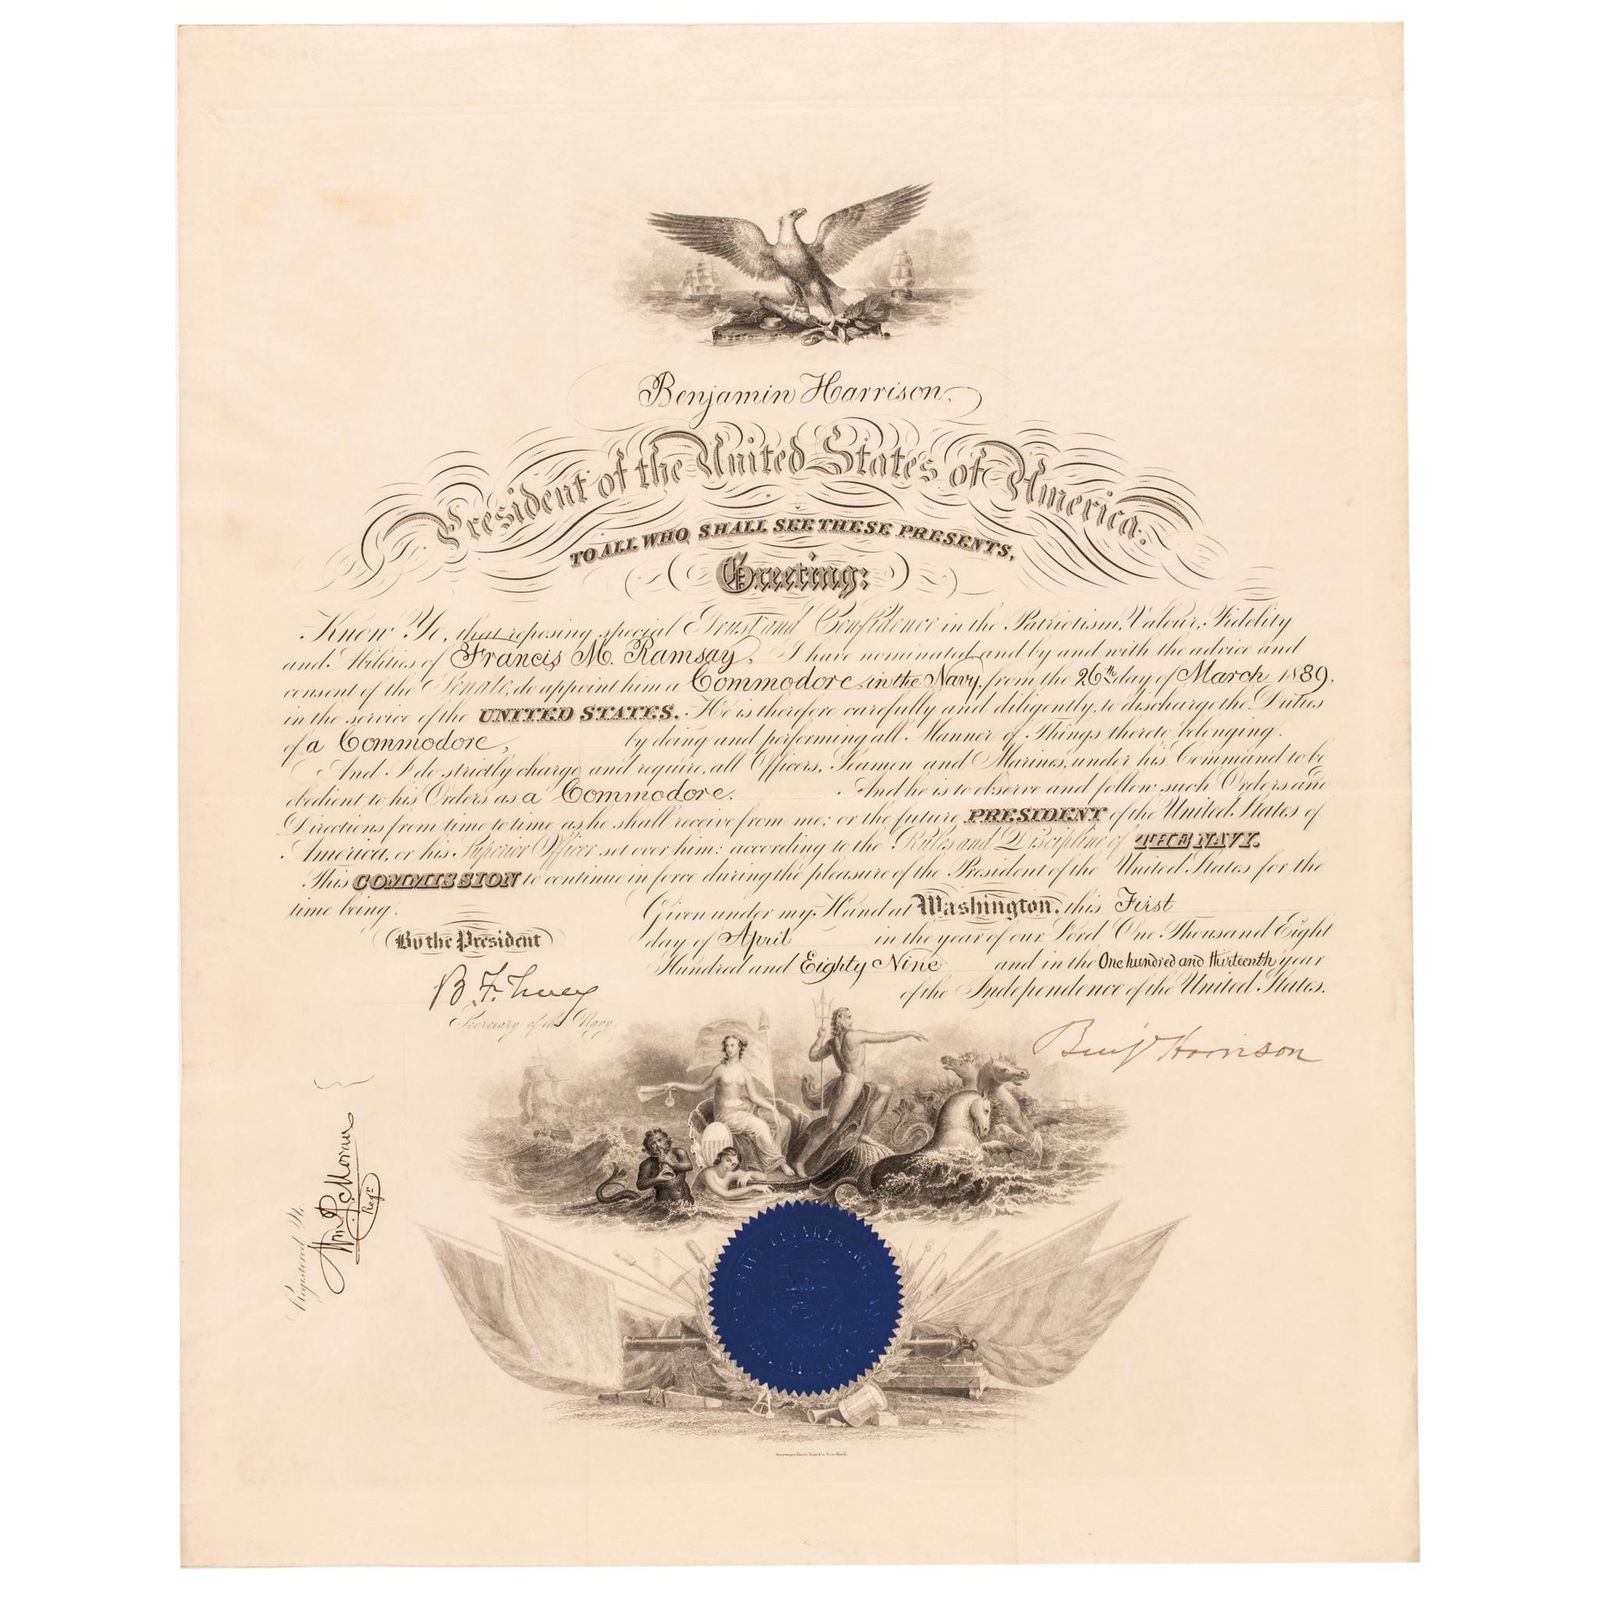 Benjamin Harrison.
President of the United States of America.
TO ALL WHO SHALL SEE THESE PRESENTS,
Greeting:
Know Ye, that reposing special Trust and Confidence in the Patriotism, Valour, Fidelity
and Abilities of Francis M. Ramsay, I have nominated and by and with the advice and
consent of the Senate, do appoint him a Commodore in the Navy, from the 26th day of March 1889,
in the service of the UNITED STATES. He is therefore carefully and diligently, to discharge the Duties
of a Commodore, by doing and performing all Manner of Things thereto belonging.
And I do strictly charge and require, all Officers, Seamen and Marines, under his Command to be
obedient to his Orders as a Commodore. And he is to observe and follow such Orders and
Directions from time to time as he shall receive from me; or the future PRESIDENT of the United States of
America, or his Superior Officer set over him: according to the Rules and Discipline of THE NAVY.
This COMMISSION to continue in force during the pleasure of the President of the United States for the
time being.
Given under my Hand at Washington, this First
day of April in the year of our Lord One Thousand Eight
Hundred and Eighty Nine and in the One hundred and thirteenth year
of the Independence of the United States.
By the President
B. F. Tracy
Secretary of the Navy.
Benj Harrison
Registered
Wm P. Moran
Regr